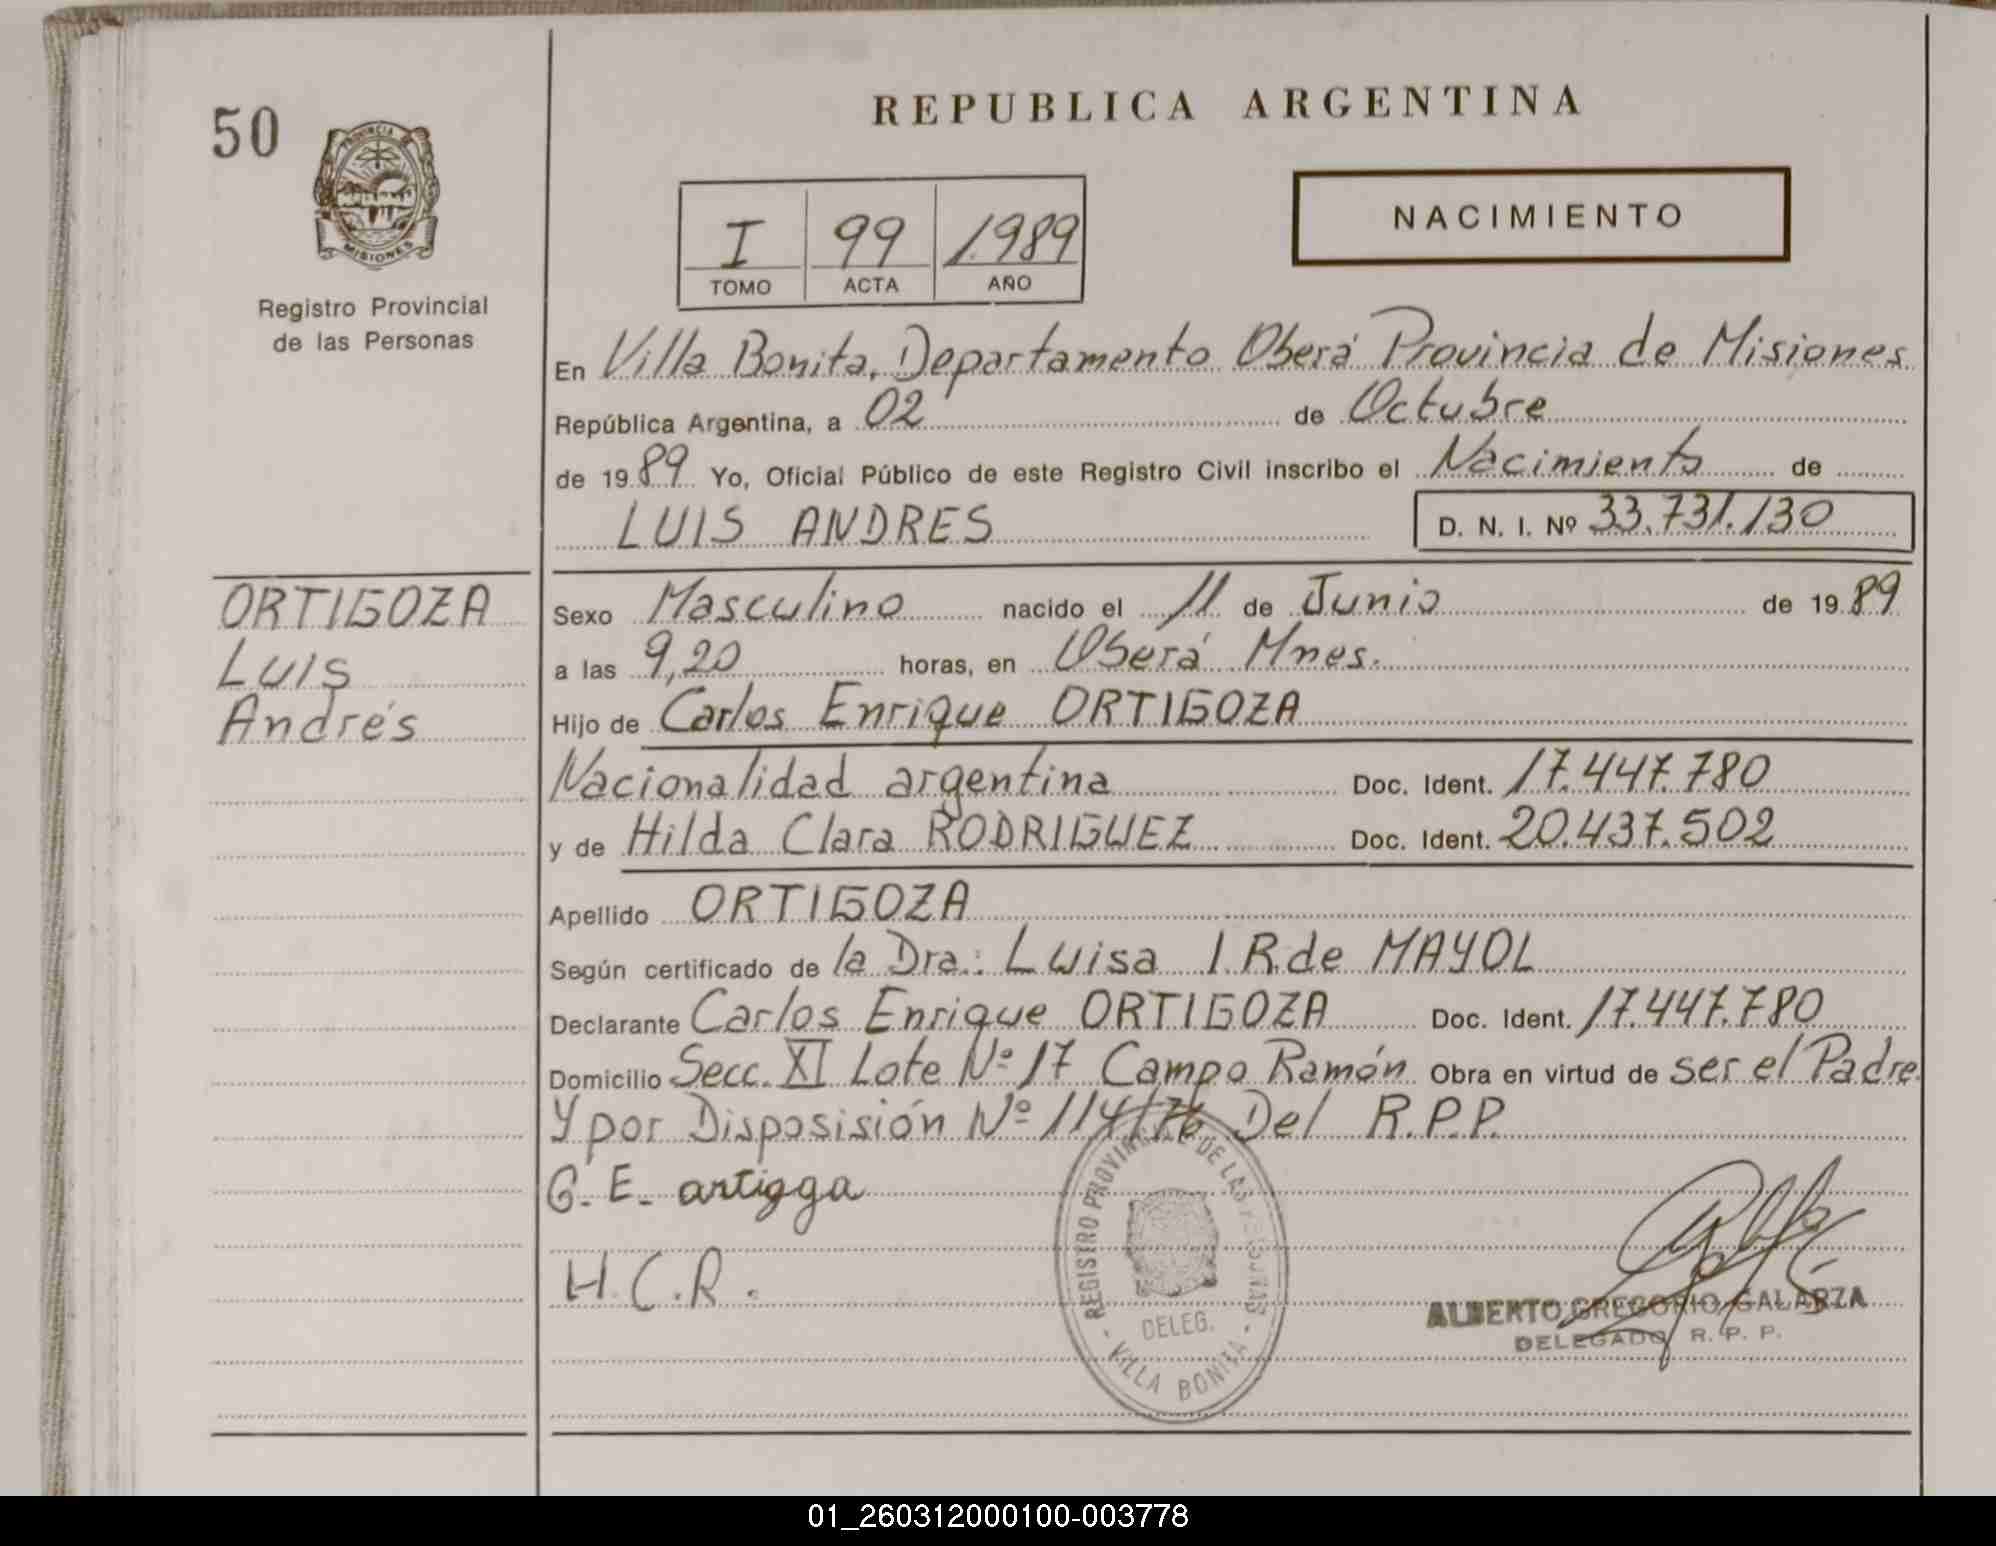 50
REPUBLICA ARGENTINA
PROVINCIA DE
MISIONES
Registro Provincial
de las Personas
NACIMIENTO
I 99 1.989
TOMO ACTA AÑO
En Villa Bonita, Departamento Oberá Provincia de Misiones
República Argentina, a 02 de Octubre
de 1989 Yo, Oficial Público de este Registro Civil inscribo el Nacimiento de
LUIS ANDRES D. N. I. Nº 33.731.130
ORTIGOZA
Luis
Andrés
Sexo Masculino nacido el 11 de Junio de 1989
a las 9,20 horas, en Oberá Mnes.
Hijo de Carlos Enrique ORTIGOZA
Nacionalidad argentina Doc. Ident. 17.447.780
y de Hilda Clara RODRIGUEZ Doc. Ident. 20.437.502
Apellido ORTIGOZA
Según certificado de la Dra.: Luisa I.R.de MAYOL
Declarante Carlos Enrique ORTIGOZA Doc. Ident. 17.447.780
Domicilio Secc. XI Lote Nº 17 Campo Ramón Obra en virtud de ser el Padre
Y por Disposisión Nº 114/76 Del R.P.P.
H.C.R.
REGISTRO PROVINCIAL DE LAS PERSONAS
DELEG.
- VILLA BONITA -
ALBERTO GREGORIO GALARZA
DELEGADO R. P. P.
01_260312000100-003778